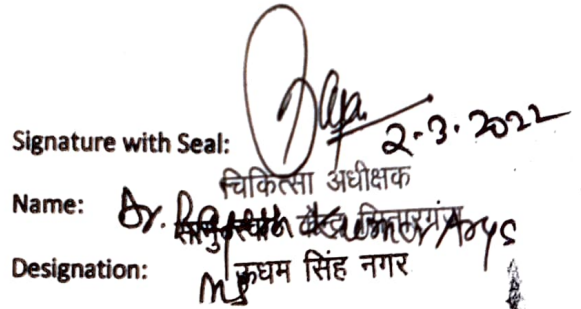 Signature with Seal: 2-3-2022
चिकित्सा अधीक्षक
Name: Dr. Kumar Arya
Designation: MS ऊधम सिंह नगर